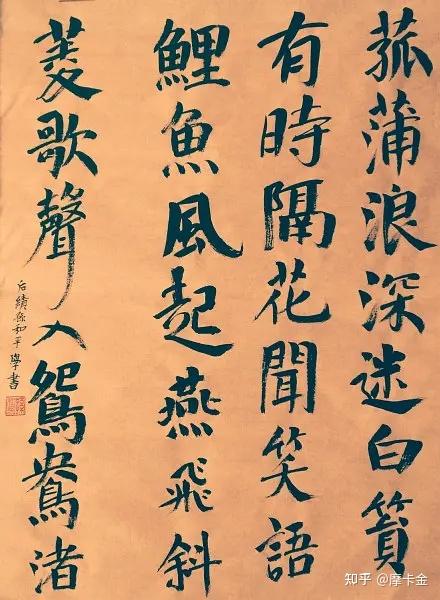 菰蒲浪深迷白篔
有時隔花聞笑語
鯉魚風起燕飛斜
菱歌聲入鴛鴦渚
后績孫和平學書
知乎 @摩卡金